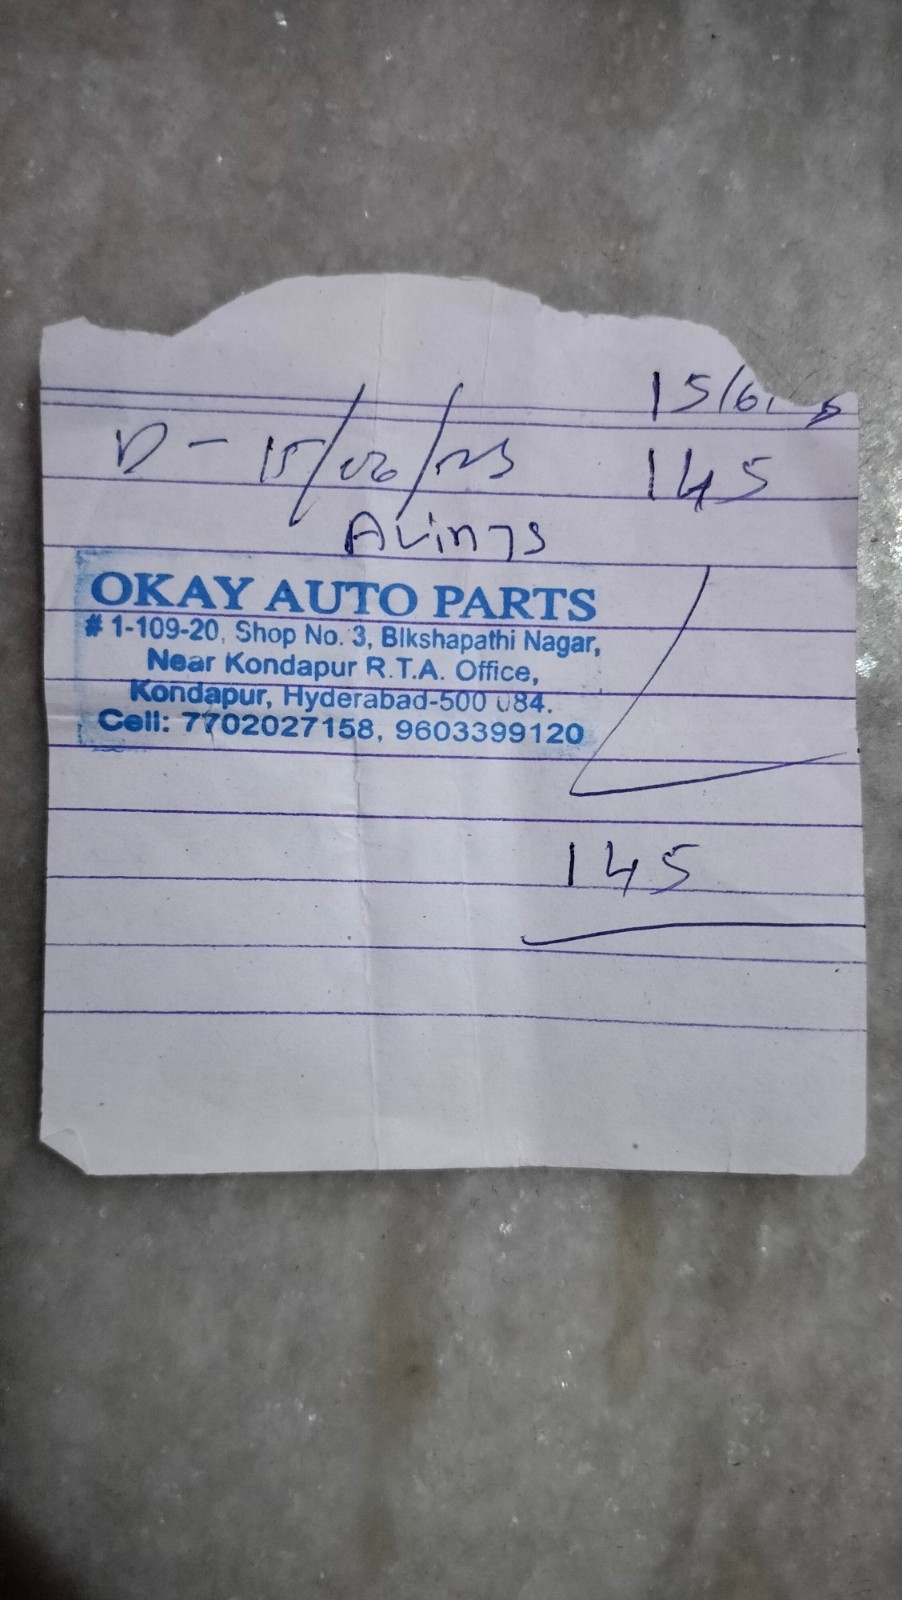 15/6/
D - 15/06/23
145
OKAY AUTO PARTS
# 1-109-20, Shop No. 3, Blkshapathi Nagar,
Near Kondapur R.T.A. Office,
Kondapur, Hyderabad-500 084.
Cell: 7702027158, 9603399120
145